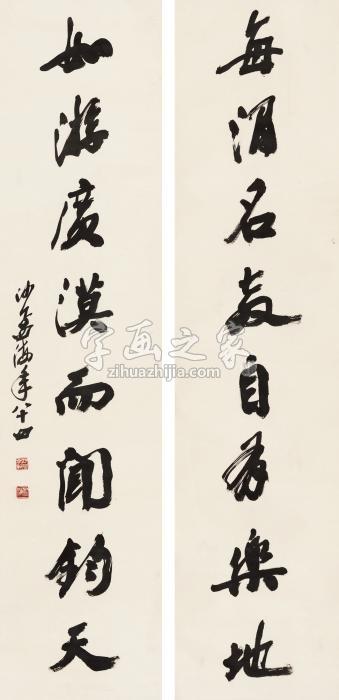 每謂名教自有樂地
如游廣漠而聞鈞天
沙孟海年八十四
字画之家
zihuazhijia.com